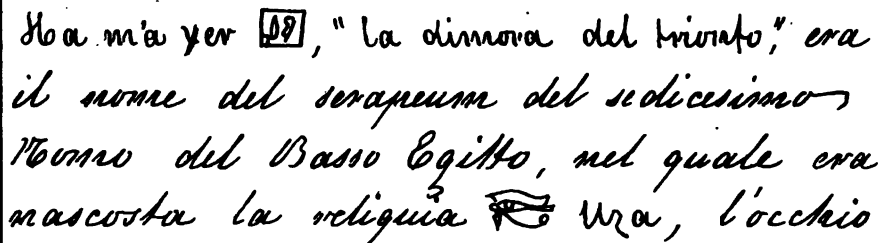 Ha m'a χer 𓉗, "la dimora del trionfo", era
il nome del serapeum del sedicesimo
Nomo del Basso Egitto, nel quale era
nascosta la reliquia 𓂀 Uza, l'occhio